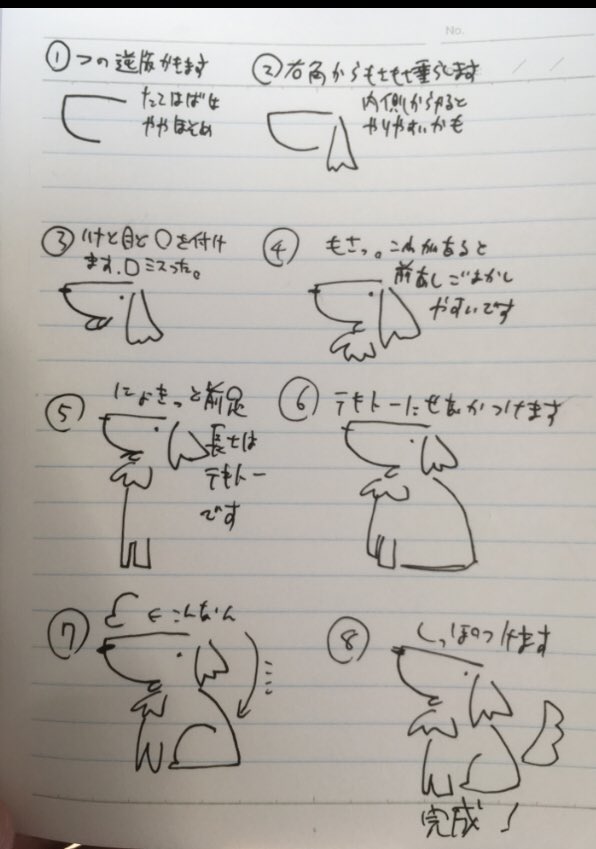 No.
① つの逆版かきます
たてはばは
ややほそめ
② 右角からもさもさ垂らします
内側からやると
やりやすいかも
③ はなと目と口を付け
ます。口ミスった。
④ もさっ。これがあると
前あしごまかし
やすいです
⑤ にょきっと前足
長さは
テキトー
です
⑥ テキトーにせなかつけます
⑦ ←こんなん
⑧ しっぽつけます
完成!